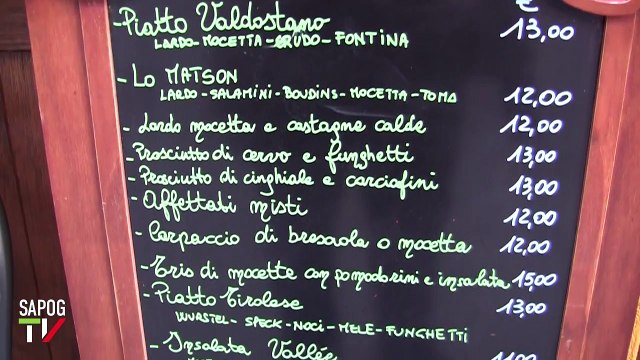 €
-Piatto Valdostano 13,00
LARDO-MOCETTA-CRUDO-FONTINA
-Lo MATSON 12,00
LARDO-SALAMINI-BOUDINS-MOCETTA-TOMA
-Lardo mocetta e castagne calde 12,00
-Prosciutto di cervo e funghetti 13,00
-Prosciutto di cinghiale e carciofini 13,00
-Affettati misti 12,00
-Carpaccio di bresaola o mocetta 12,00
-Tris di mocette con pomodorini e insalata 15,00
-Piatto Tirolese 13,00
WURSTEL-SPECK-NOCI-MELE-FUNGHETTI
-Insalata Vallée
SAPOG
TV